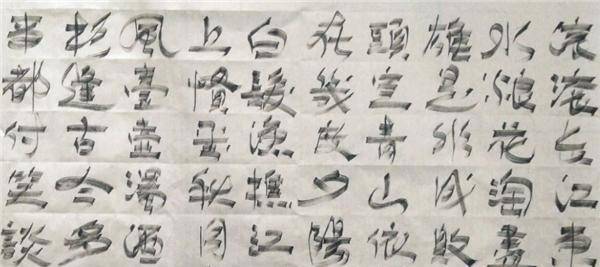 滚滚长江东
水浪花淘盡
雄是非成敗
頭空青山依
在幾度夕陽
白髮漁樵江
上慣看秋月
風壹壺濁酒
相逢古今多
事都付笑談